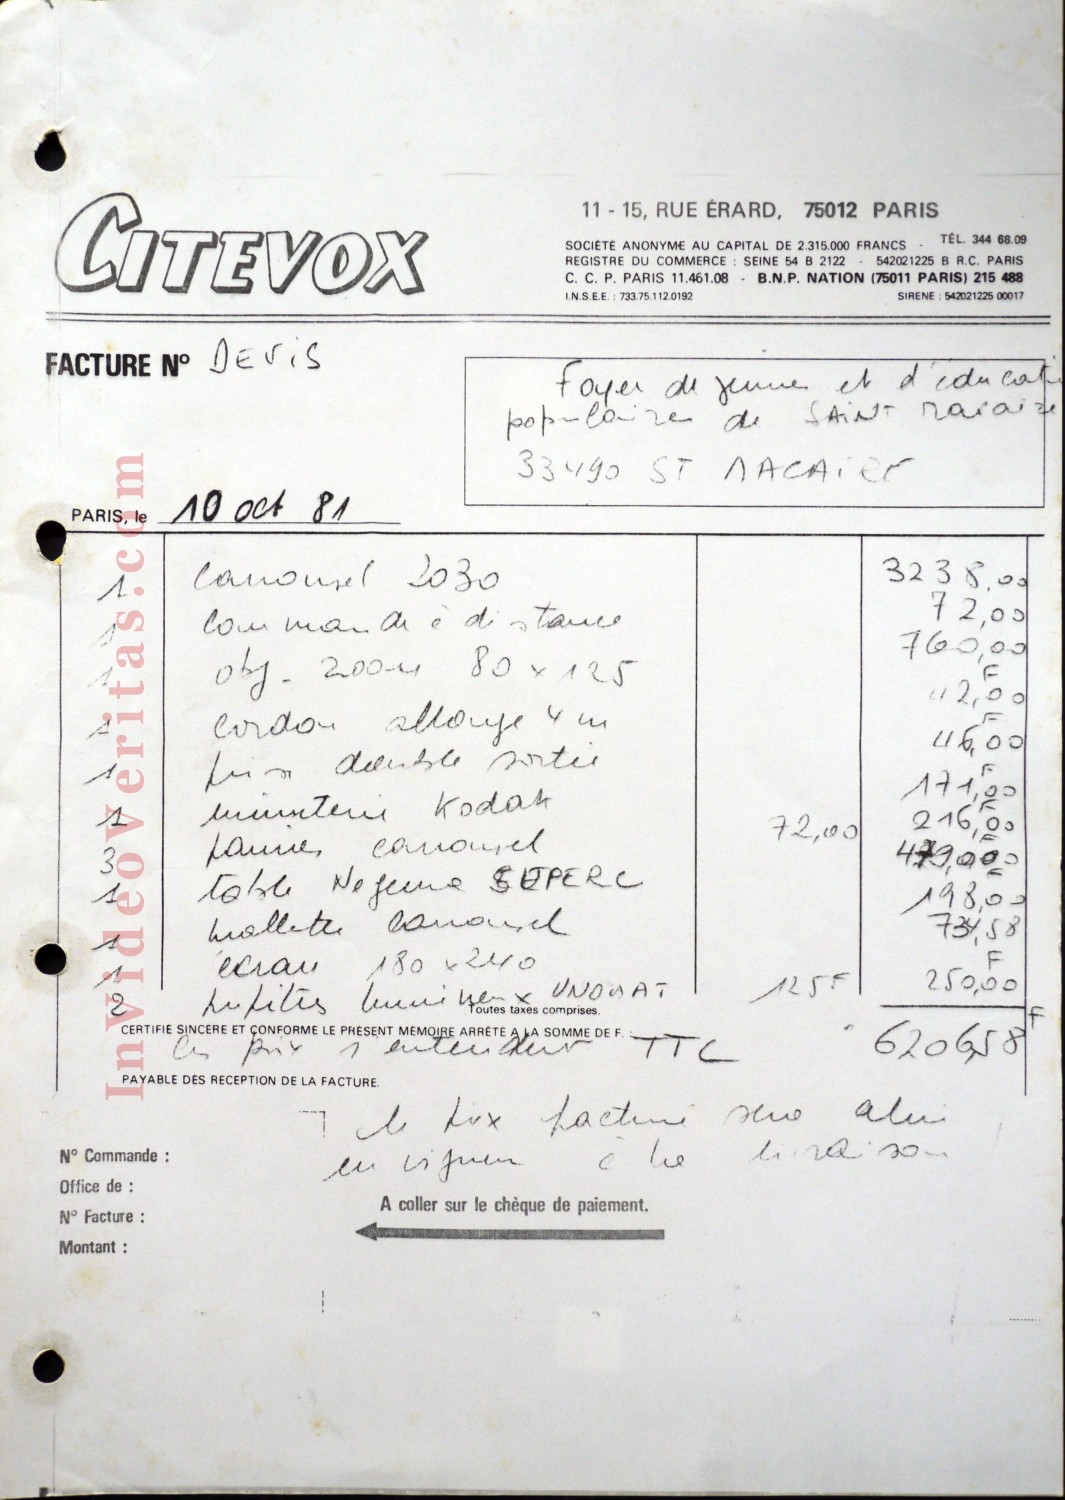 CITEVOX
11 - 15, RUE ÉRARD, 75012 PARIS
SOCIÉTÉ ANONYME AU CAPITAL DE 2.315.000 FRANCS - TÉL. 344 68.09
REGISTRE DU COMMERCE : SEINE 54 B 2122 - 542021225 B R.C. PARIS
C. C. P. PARIS 11.461.08 - B.N.P. NATION (75011 PARIS) 215 488
I.N.S.E.E. : 733.75.112.0192 SIRENE : 542021225 00017
FACTURE Nº DEVIS
Foyer de jeunes et d'éducati
populaires de SAINT Macaire
33490 ST MACAIRE
PARIS, le 10 oct 81
1 Carrousel 2030 3238,00
1 Commande à distance 72,00
1 obj. zoom 80 x 125 760,00
1 cordon allonge 4 m F 42,00
1 prise double sortie F 46,00
1 minuterie Kodak F 171,00
3 paniers carrousel 72,00 F 216,00
1 table Negema SUPERC
1 mallette Carrousel F 198,00
1 écran 180 x 240 734,58
2 pupitres lumineux UNOMAT 125F F 250,00
Toutes taxes comprises.
CERTIFIÉ SINCERE ET CONFORME LE PRÉSENT MÉMOIRE ARRÊTÉ A LA SOMME DE F. :
Ces prix s'entendent TTC 6206,58 F
PAYABLE DÈS RECEPTION DE LA FACTURE.
le prix facturé sera celui
en vigueur à la livraison
Nº Commande :
Office de :
Nº Facture :
Montant :
A coller sur le chèque de paiement.
InvideoVeritas.com